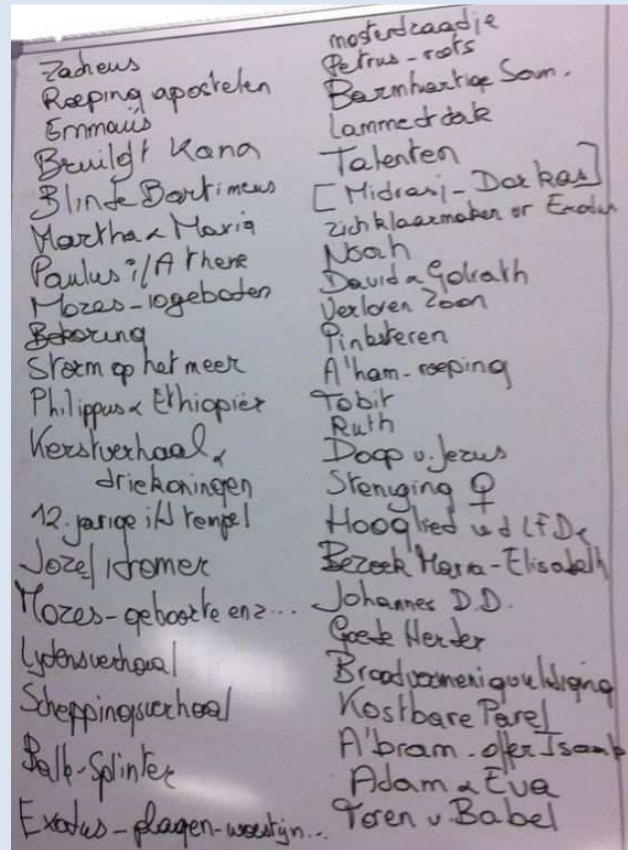 Zacheus
Roeping apostelen
Emmaüs
Bruiloft Kana
Blinde Bartimeus
Martha & Maria
Paulus i/Athene
Mozes - 10 geboden
Bekoring
Storm op het meer
Philippus & Ethiopiër
Kerstverhaal &
driekoningen
12-jarige i/d tempel
Jozef dromer
Mozes - geboorte enz...
Lijdensverhaal
Scheppingsverhaal
Balk - Splinter
Exodus - plagen - woestijn...
mosterdzaadje
Petrus - rots
Barmhartige Sam.
Lamme dak
Talenten
[Midrasj - Dorkas]
zich klaarmaken Exodus
Noah
David & Goliath
Verloren Zoon
Pinksteren
A'ham - roeping
Tobit
Ruth
Doop v. Jezus
Steniging ♀
Hooglied
Bezoek Maria - Elisabeth
Johannes D.D.
Goede Herder
Broodvermenigvuldiging
Kostbare Parel
A'bram - offer Isaak
Adam & Eva
Toren v. Babel